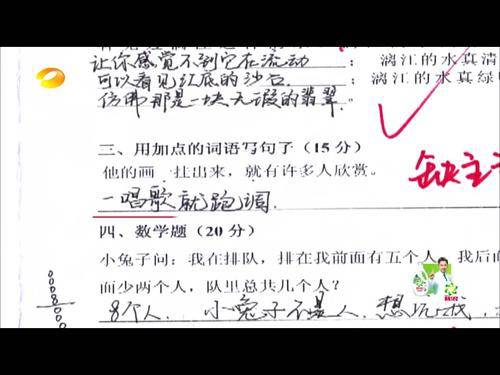 让你感觉不到它在流动 ; 漓江的水真清
可以看见江底的沙石 ; 漓江的水真绿
仿佛那是一块无瑕的翡翠。
三、用加点的词语写句子(15分)
他的画一挂出来,就有许多人欣赏。
缺主
一唱歌就跑调.
四、数学题(20分)
小兔子问:我在排队,排在我前面有五个人,我后面
面少两个人,队里总共几个人?
8个人. 小兔子不是人.想坑我.